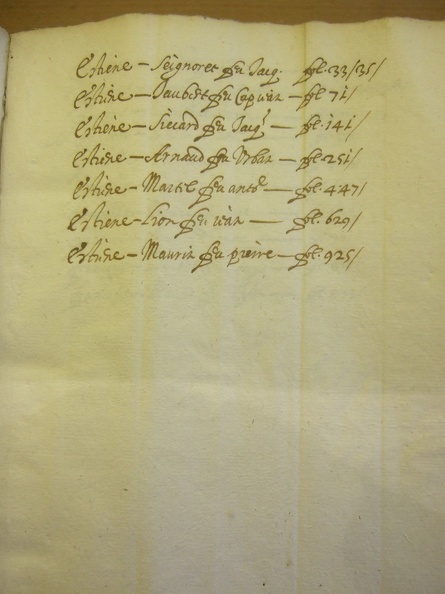 Estiene – Seignoret feu Jacq. fol. 33/35/
Estiene – Jaubert feu fol 71/
Estiene – Siccard feu Jacq – fol. 141/
Estiene – Arnaud feu Urban – fol. 251/
Estiene – Martel feu anto^e – fol. 447/
Estiene – Lion feu – fol. 629/
Estiene – Maurin feu pierre – fol. 925/